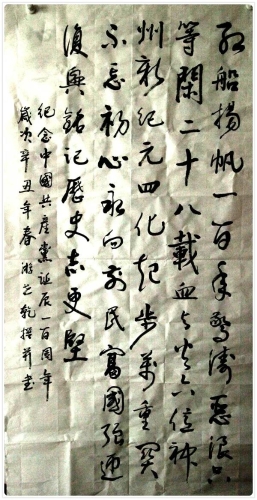 红船揚帆一百年驚濤惡浪只
等閑二十八載血与火六億神
州新纪元四化起步萬重関
不忘初心永向前民富國强迎
復興銘记歷史志更堅
纪念中國共產黨诞辰一百周年
歲次辛丑年春游芝乾撰并書